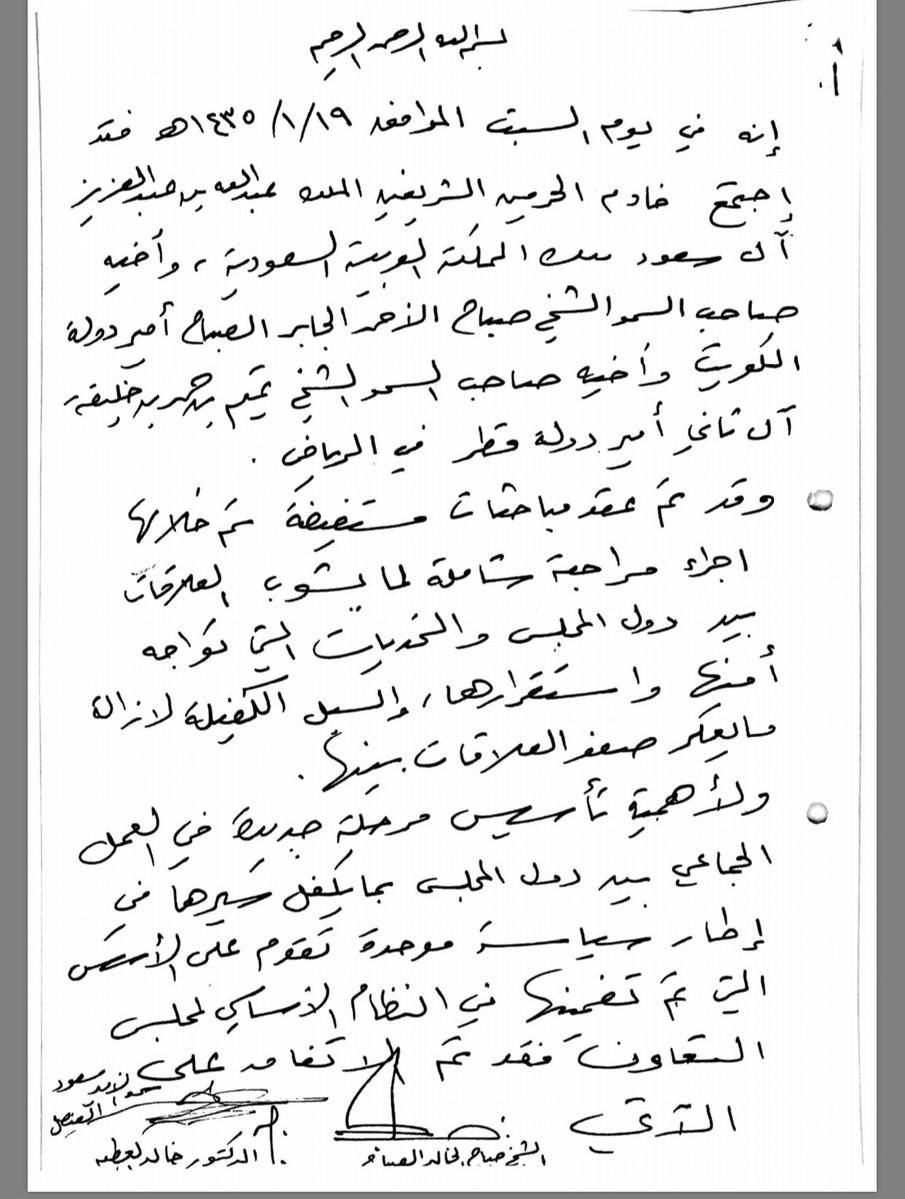 بسم الله الرحمن الرحيم
إنه في يوم السبت الموافق ١٤٣٥/١/١٩هـ فقد
إجتمع خادم الحرمين الشريفين الملك عبدالله بن عبدالعزيز
آل سعود ملك المملكة العربية السعودية ، وأخيه
صاحب السمو الشيخ صباح الأحمد الجابر الصباح أمير دولة
الكويت وأخيه صاحب السمو الشيخ تميم بن حمد بن خليفة
آل ثاني أمير دولة قطر في الرياض .
وقد تم عقد مباحثات مستفيضة تم خلالها
اجراء مراجعة شاملة لما يشوب العلاقات
بين دول المجلس والتحديات التي تواجه
أمنها واستقرارها، والسبل الكفيلة لازالة
مايعكر صفو العلاقات بينها .
ولأهمية تأسيس مرحلة جديدة في العمل
الجماعي بين دول المجلس بما يكفل سيرها في
إطار سياسة موحدة تقوم على الأسس
التي تم تضمينها في النظام الأساسي لمجلس
التعاون فقد تم الاتفاق على
الآتي
سمو الأمير سعود
الفيصل
الشيخ صباح الخالد الصباح
الدكتور خالد العطية